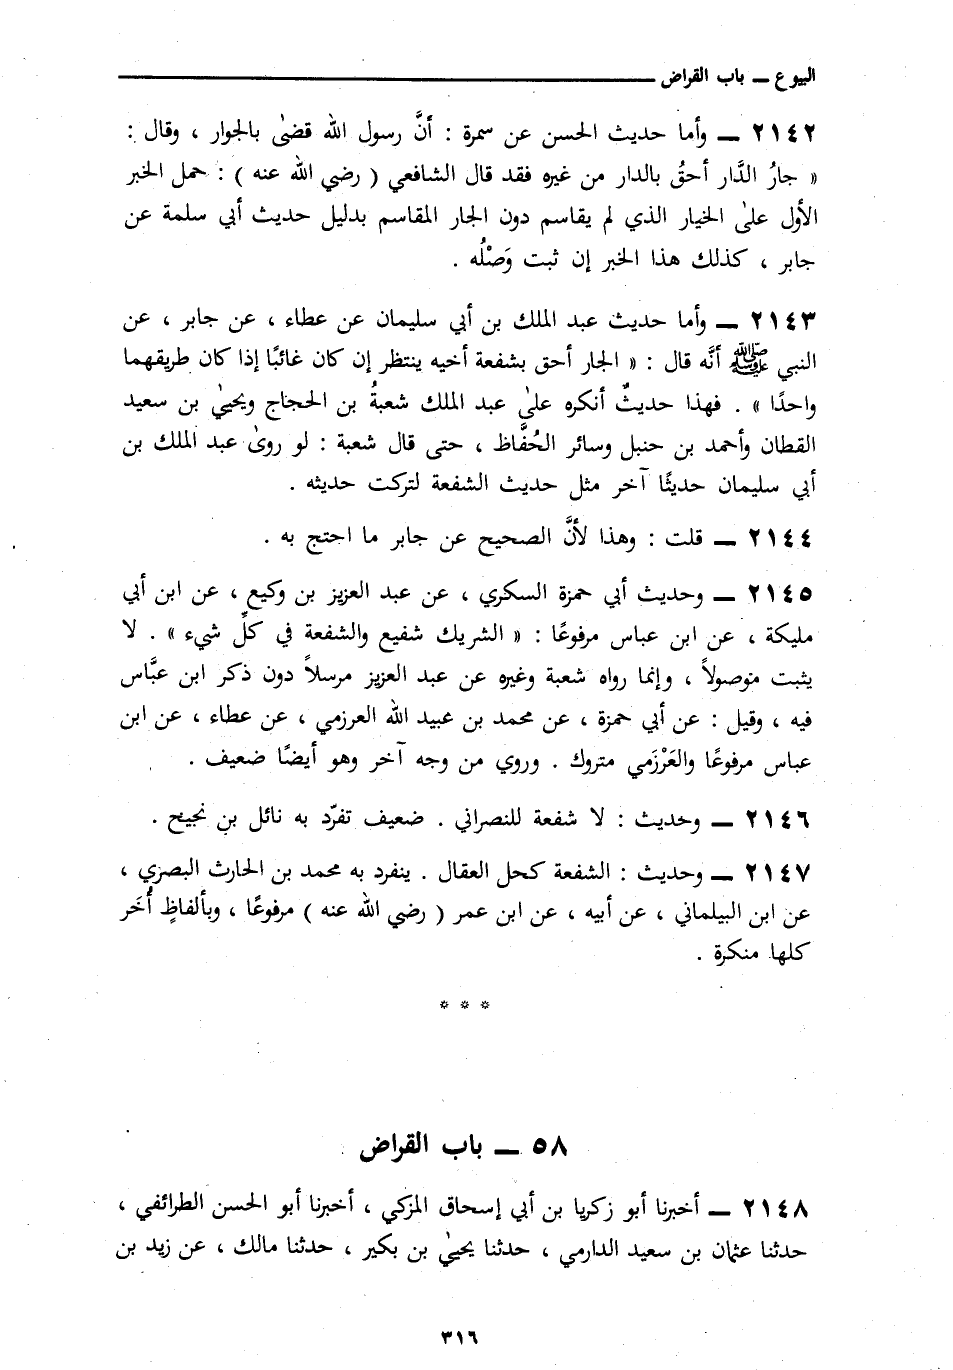 البيوع ــ باب القراض
٢١٤٢ ــ وأما حديث الحسن عن سمرة : أنَّ رسول الله قضىٰ بالجوار ، وقال :
« جارُ الدَّار أحقُ بالدار من غيره فقد قال الشافعي ( رضي الله عنه ) : حمل الخبر
الأول علىٰ الخيار الذي لم يقاسم دون الجار المقاسم بدليل حديث أبي سلمة عن
جابر ، كذلك هذا الخبر إن ثبت وَصْلُه .
٢١٤٣ ــ وأما حديث عبد الملك بن أبي سليمان عن عطاء ، عن جابر ، عن
النبي ﷺ أنَّه قال : « الجار أحق بشفعة أخيه ينتظر إن كان غائبًا إذا كان طريقهما
واحدًا » . فهذا حديثٌ أنكره علىٰ عبد الملك شعبةُ بن الحجاج ويحيىٰ بن سعيد
القطان وأحمد بن حنبل وسائر الحُفَّاظ ، حتى قال شعبة : لو روىٰ عبد الملك بن
أبي سليمان حديثًا آخر مثل حديث الشفعة لتركت حديثه .
٢١٤٤ ــ قلت : وهذا لأنَّ الصحيح عن جابر ما احتج به .
٢١٤٥ ــ وحديث أبي حمزة السكري ، عن عبد العزيز بن وكيع ، عن ابن أبي
مليكة ، عن ابن عباس مرفوعًا : « الشريك شفيع والشفعة في كلِّ شيء » . لا
يثبت موصولاً ، وإنما رواه شعبة وغيره عن عبد العزيز مرسلاً دون ذكر ابن عبَّاس
فيه ، وقيل : عن أبي حمزة ، عن محمد بن عبيد الله العرزمي ، عن عطاء ، عن ابن
عباس مرفوعًا والعَرْزَمي متروك . وروي من وجه آخر وهو أيضًا ضعيف .
٢١٤٦ ــ وحديث : لا شفعة للنصراني . ضعيف تفرّد به نائل بن نجيح .
٢١٤٧ ــ وحديث : الشفعة كحل العقال . ينفرد به محمد بن الحارث البصري ،
عن ابن البيلماني ، عن أبيه ، عن ابن عمر ( رضي الله عنه ) مرفوعًا ، وبألفاظٍ أُخَر
كلها منكرة .
* * *
٥٨ ــ باب القراض
٢١٤٨ ــ أخبرنا أبو زكريا بن أبي إسحاق المزكي ، أخبرنا أبو الحسن الطرائفي ،
حدثنا عثمان بن سعيد الدارمي ، حدثنا يحيىٰ بن بكير ، حدثنا مالك ، عن زيد بن
٣١٦